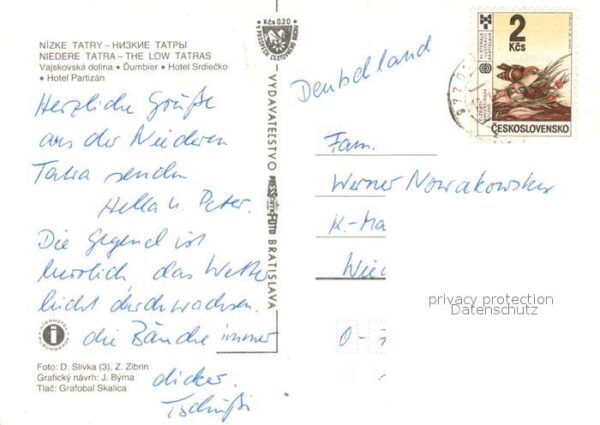 NÍZKE TATRY – НИЗКИЕ ТАТРЫ
NIEDERE TATRA – THE LOW TATRAS
Vajskovská dolina • Ďumbier • Hotel Srdiečko
• Hotel Partizán
Herzliche Grüße
aus der Niederen
Tatra senden
Hella u. Peter.
Die Gegend ist
herrlich, das Wetter
leicht durchwachsen.
die Bäuche immer
dicker.
Tschüßi
Foto: D. Slivka (3), Z. Zibrin
Grafický návrh: J. Býma
Tlač: Grafobal Skalica
Kčs 0,20
VYDAVATEĽSTVO
BRATISLAVA
Deutschland
2
Kčs
ČESKOSLOVENSKO
Fam.
Werner Nowakowski
K.-Ma
privacy protection
Datenschutz